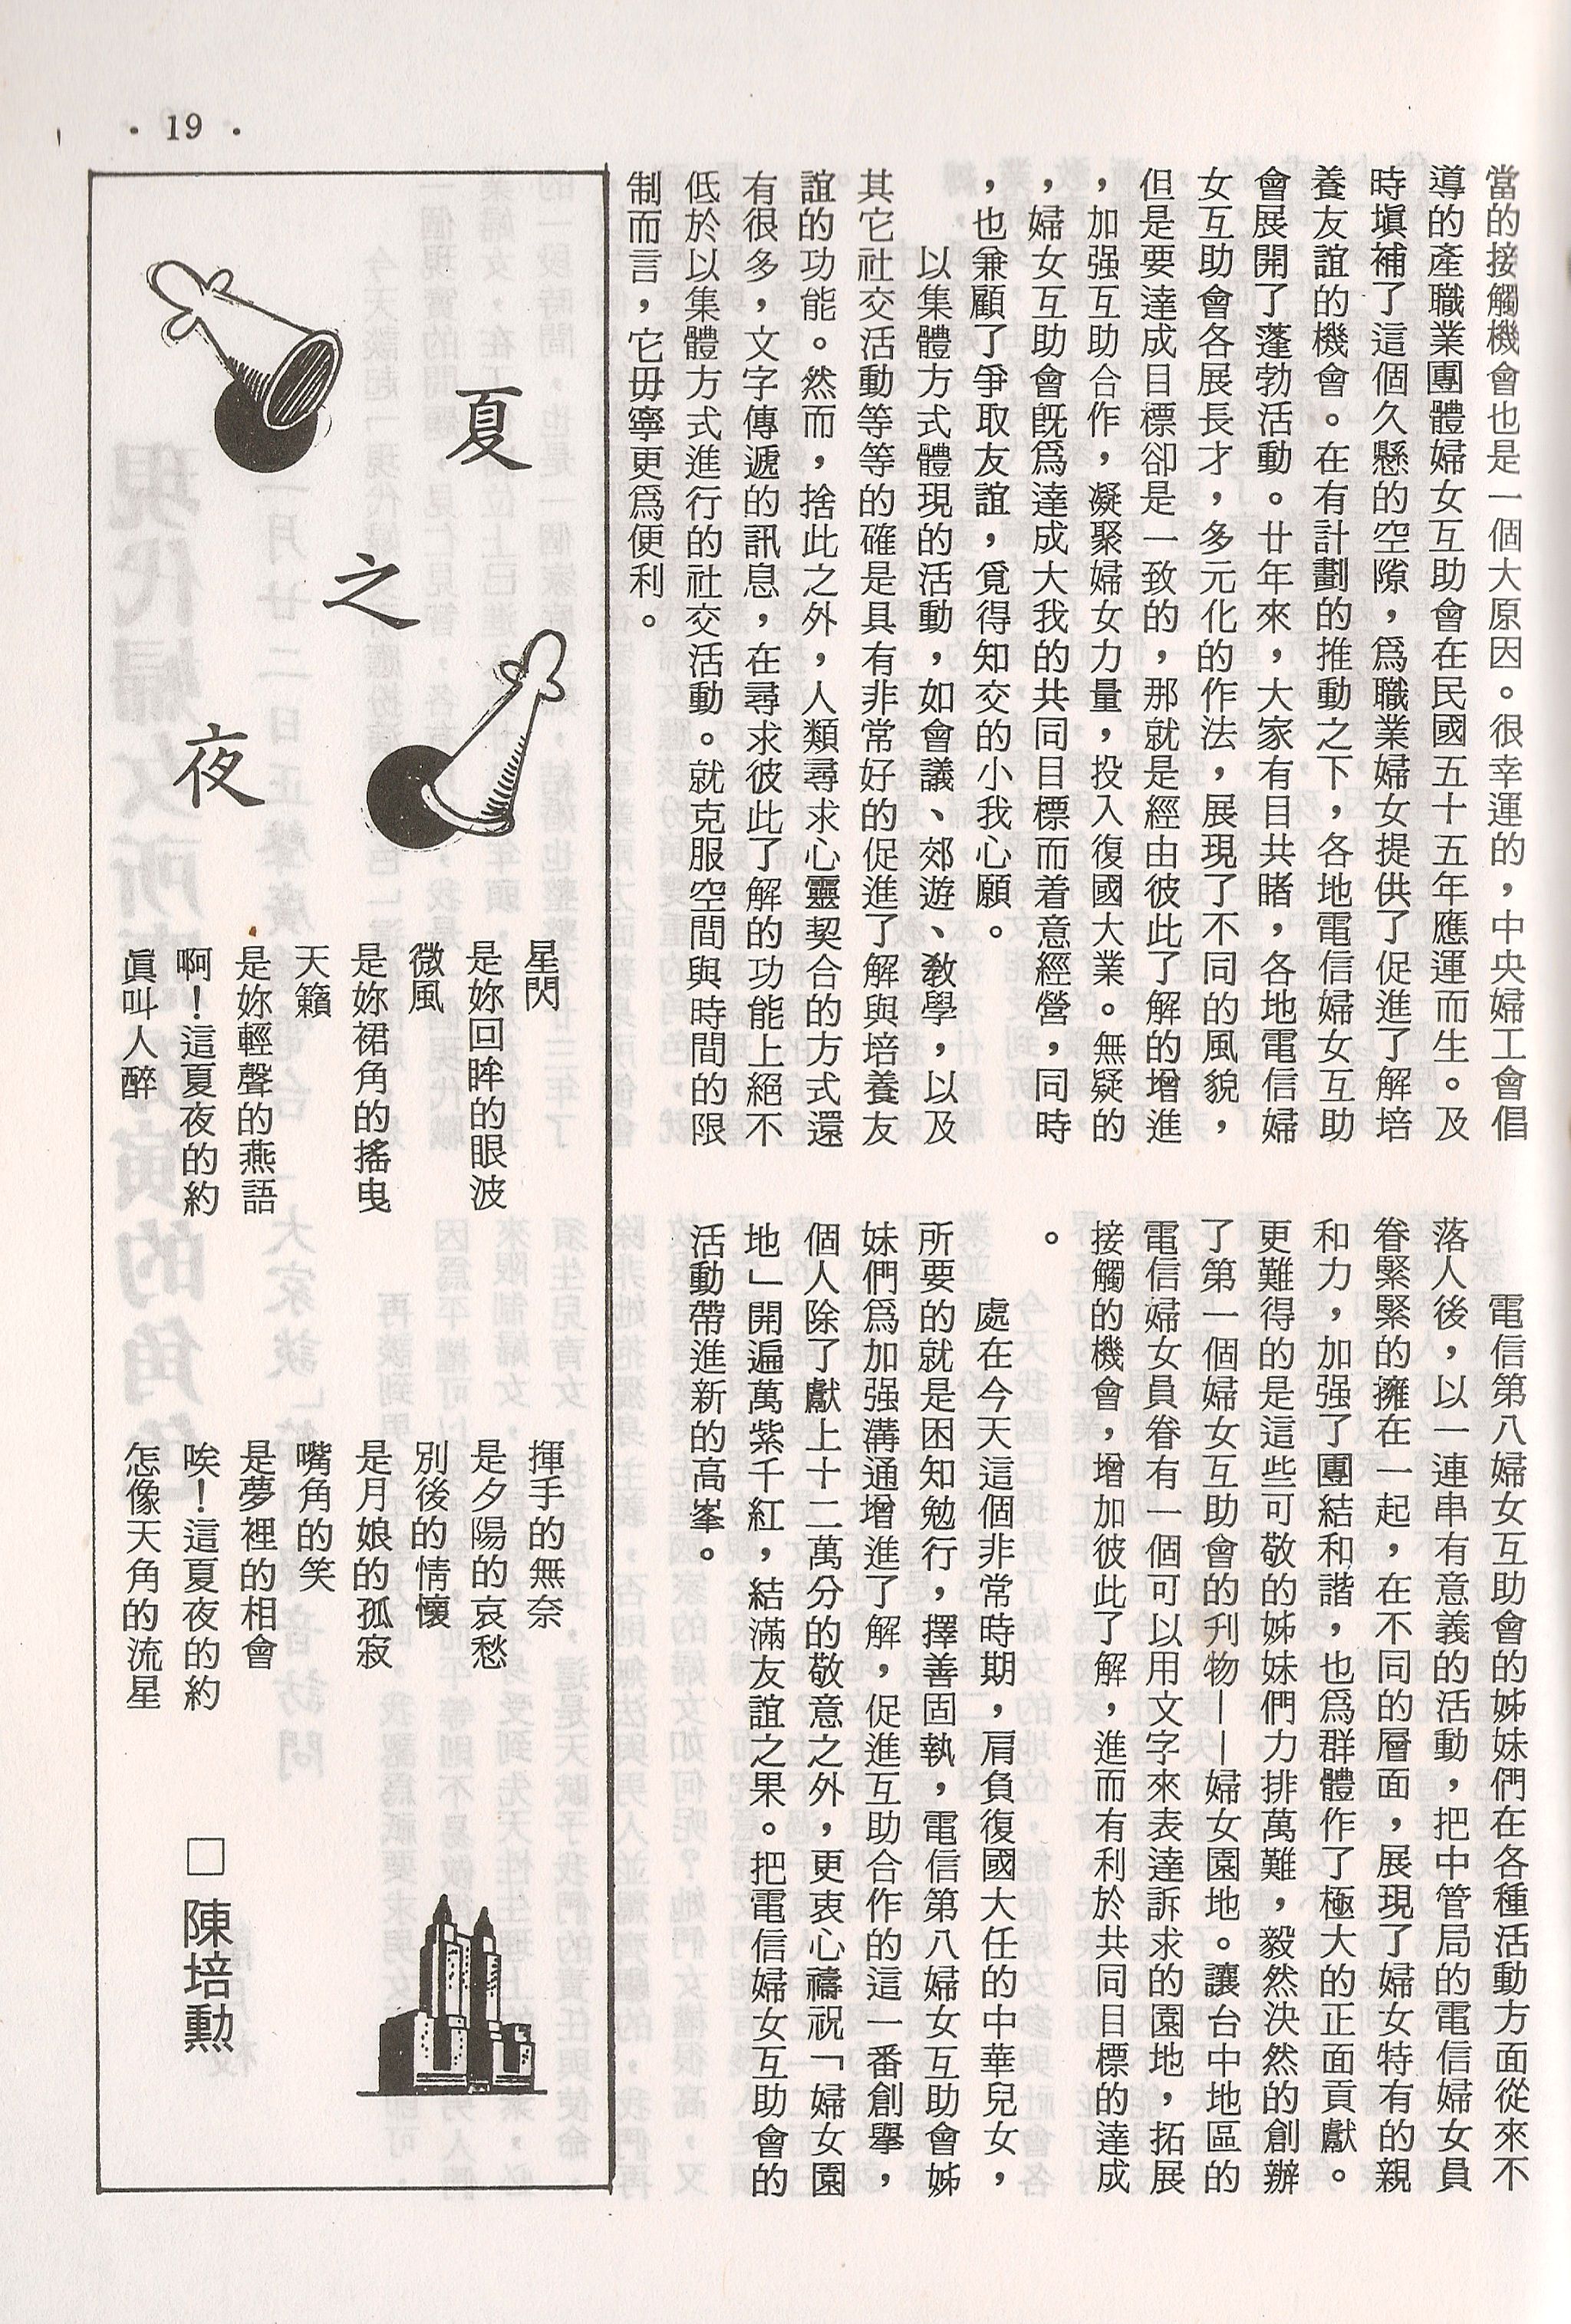 · 19 ·
當的接觸機會也是一個大原因。很幸運的，中央婦工會倡
導的產職業團體婦女互助會在民國五十五年應運而生。及
時塡補了這個久懸的空隙，爲職業婦女提供了促進了解培
養友誼的機會。在有計劃的推動之下，各地電信婦女互助
會展開了蓬勃活動。廿年來，大家有目共睹，各地電信婦
女互助會各展長才，多元化的作法，展現了不同的風貌，
但是要達成目標卻是一致的，那就是經由彼此了解的增進
，加强互助合作，凝聚婦女力量，投入復國大業。無疑的
，婦女互助會旣爲達成大我的共同目標而着意經營，同時
，也兼顧了爭取友誼，覓得知交的小我心願。
以集體方式體現的活動，如會議、郊遊、敎學，以及
其它社交活動等等的確是具有非常好的促進了解與培養友
誼的功能。然而，捨此之外，人類尋求心靈契合的方式還
有很多，文字傳遞的訊息，在尋求彼此了解的功能上絕不
低於以集體方式進行的社交活動。就克服空間與時間的限
制而言，它毋寧更爲便利。
電信第八婦女互助會的姊妹們在各種活動方面從來不
落人後，以一連串有意義的活動，把中管局的電信婦女員
眷緊緊的擁在一起，在不同的層面，展現了婦女特有的親
和力，加强了團結和諧，也爲群體作了極大的正面貢獻。
更難得的是這些可敬的姊妹們力排萬難，毅然決然的創辦
了第一個婦女互助會的刋物——婦女園地。讓台中地區的
電信婦女員眷有一個可以用文字來表達訴求的園地，拓展
接觸的機會，增加彼此了解，進而有利於共同目標的達成
。
處在今天這個非常時期，肩負復國大任的中華兒女，
所要的就是困知勉行，擇善固執，電信第八婦女互助會姊
妹們爲加强溝通增進了解，促進互助合作的這一番創擧，
個人除了獻上十二萬分的敬意之外，更衷心禱祝「婦女園
地」開遍萬紫千紅，結滿友誼之果。把電信婦女互助會的
活動帶進新的高峯。
夏之夜
星閃
是妳回眸的眼波
微風
是妳裙角的搖曳
天籟
是妳輕聲的燕語
啊！這夏夜的約
眞叫人醉
揮手的無奈
是夕陽的哀愁
別後的情懷
是月娘的孤寂
嘴角的笑
是夢裡的相會
唉！這夏夜的約
怎像天角的流星
□陳培勳